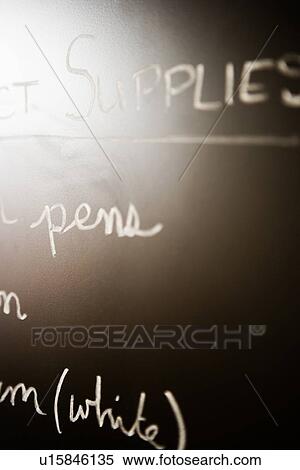 ct. SUPPLIES
pens
n
m (white)
FOTOSEARCH
u15846135 www.fotosearch.com